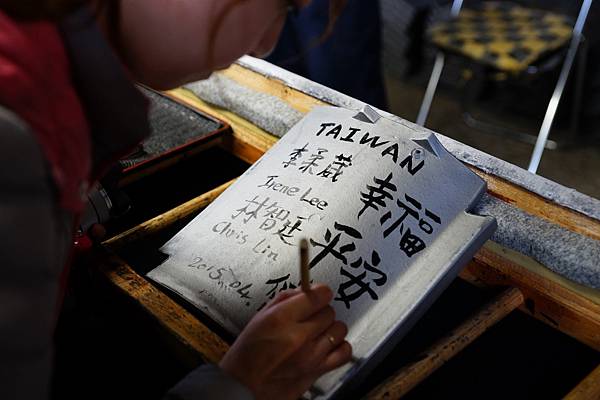 TAIWAN
幸福
平安
李柔葳
Irene Lee
林智廷
Chris Lin
2015.04.